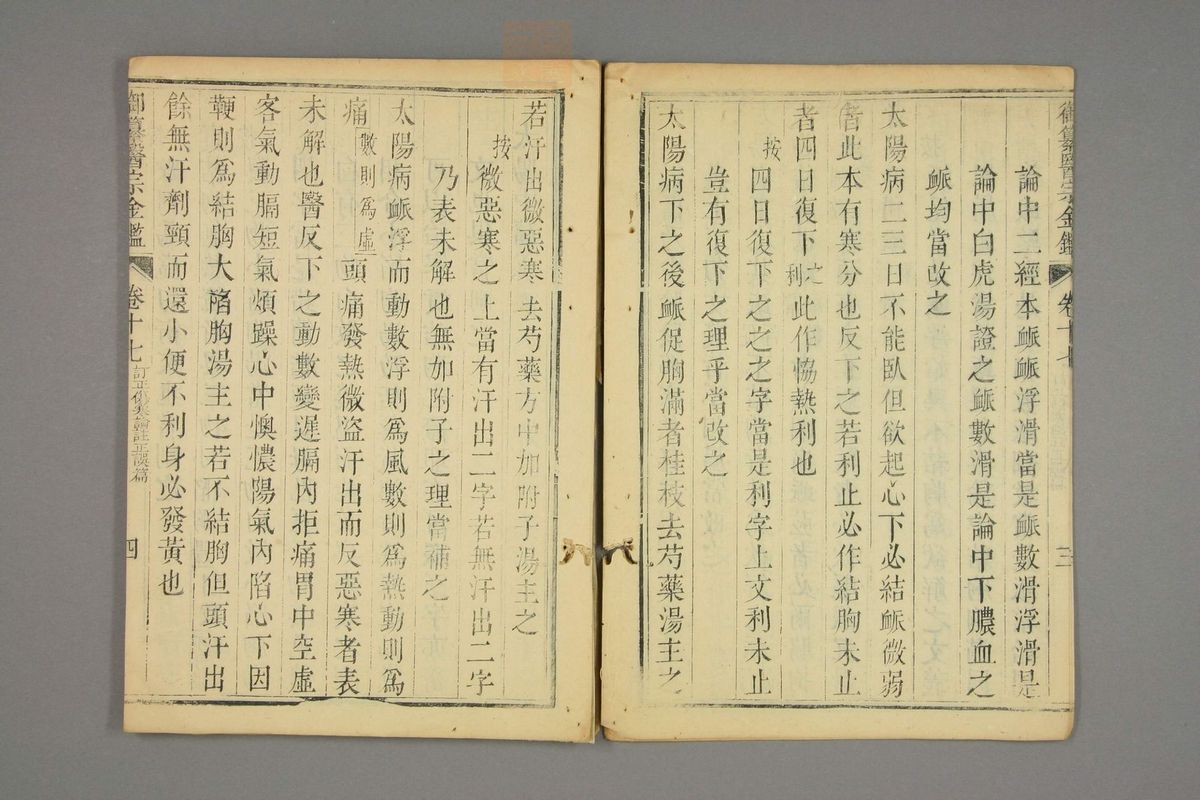 御纂醫宗金鑑 卷十七 三
論中二經本脈脈浮滑當是脈數滑浮滑是
論中白虎湯證之脈數滑是論中下膿血之
脈均當改之
太陽病二三日不能臥但欲起心下必結脈微弱
者此本有寒分也反下之若利止必作結胸未止
者四日復下之利此作協熱利也
按四日復下之之字當是利字上文利未止
豈有復下之理乎當改之
太陽病下之後脈促胸滿者桂枝去芍藥湯主之
若汗出微惡寒去芍藥方中加附子湯主之
按微惡寒之上當有汗出二字若無汗出二字
乃表未解也無加附子之理當補之
太陽病脈浮而動數浮則爲風數則爲熱動則爲
痛數則爲虛頭痛發熱微盜汗出而反惡寒者表
未解也醫反下之動數變遲膈內拒痛胃中空虛
客氣動膈短氣煩躁心中懊憹陽氣內陷心下因
鞕則爲結胸大陷胸湯主之若不結胸但頭汗出
餘無汗劑頸而還小便不利身必發黃也
御纂醫宗金鑑 卷十七 訂正傷寒論註正誤篇 四